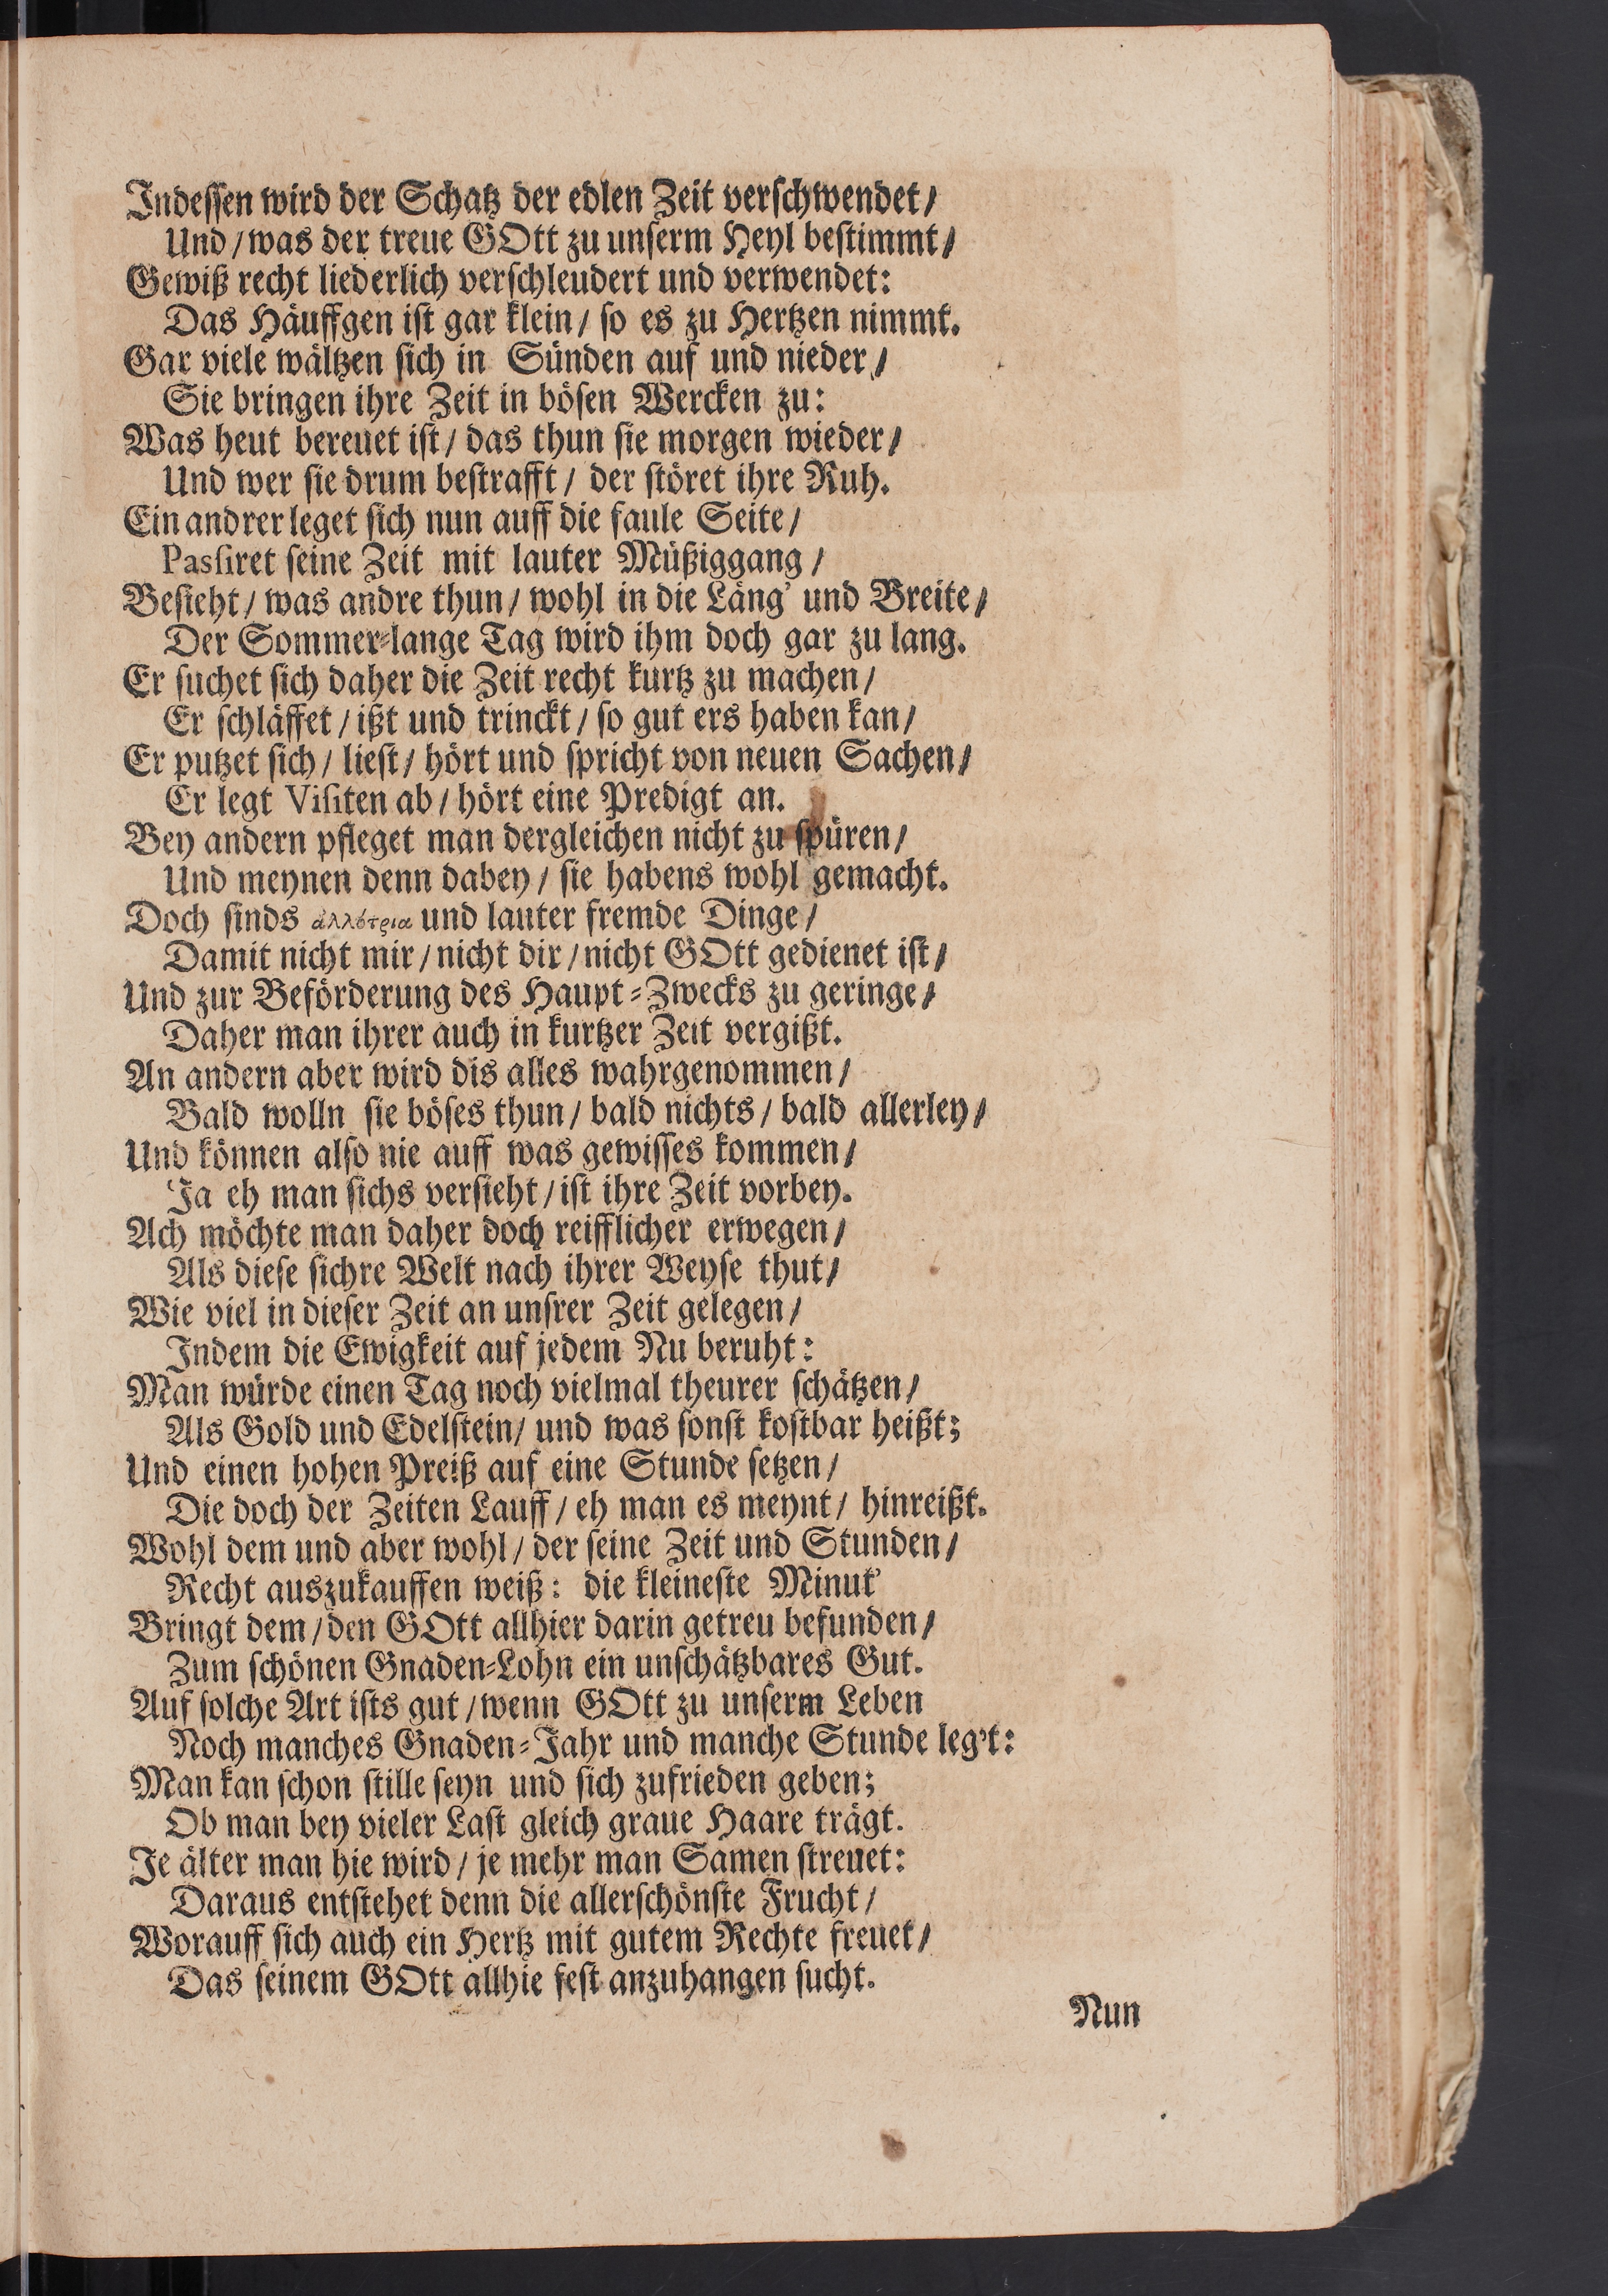 Indessen wird der Schatz der edlen Zeit verschwendet/
Und/was der treue GOtt zu unserm Heyl bestimmt/
Gewiß recht liederlich verschleudert und verwendet:
Das Häuffgen ist gar klein/ so es zu Hertzen nimmt.
Gar viele wältzen sich in Sünden auf und nieder/
Sie bringen ihre Zeit in bösen Wercken zu:
Was heut bereuet ist/ das thun sie morgen wieder/
Und wer sie drum bestrafft/ der störet ihre Ruh.
Ein andrer leget sich nun auff die faule Seite/
Passiret seine Zeit mit lauter Müßiggang/
Besieht/ was andre thun/ wohl in die Läng' und Breite/
Der Sommer-lange Tag wird ihm doch gar zu lang.
Er suchet sich daher die Zeit recht kurtz zu machen/
Er schläffet/ ißt und trinckt/ so gut ers haben kan/
Er putzet sich/ liest/ hört und spricht von neuen Sachen/
Er legt Visiten ab/ hört eine Predigt an.
Bey andern pfleget man dergleichen nicht zu spüren/
Und meynen denn dabey/ sie habens wohl gemacht.
Doch sinds ἀλλότρια und lauter fremde Dinge/
Damit nicht mir/ nicht dir/ nicht GOtt gedienet ist/
Und zur Beförderung des Haupt-Zwecks zu geringe/
Daher man ihrer auch in kurtzer Zeit vergißt.
An andern aber wird dis alles wahrgenommen/
Bald wolln sie böses thun/ bald nichts/ bald allerley/
Und können also nie auff was gewisses kommen/
Ja eh man sichs versieht/ ist ihre Zeit vorbey.
Ach möchte man daher doch reifflicher erwegen/
Als diese sichre Welt nach ihrer Weyse thut/
Wie viel in dieser Zeit an unsrer Zeit gelegen/
Indem die Ewigkeit auf jedem Nu beruht:
Man würde einen Tag noch vielmal theurer schätzen/
Als Gold und Edelstein/ und was sonst kostbar heißt;
Und einen hohen Preiß auf eine Stunde setzen/
Die doch der Zeiten Lauff/ eh man es meynt/ hinreißt.
Wohl dem und aber wohl/ der seine Zeit und Stunden/
Recht auszukauffen weiß: die kleineste Minut'
Bringt dem/ den GOtt allhier darin getreu befunden/
Zum schönen Gnaden-Lohn ein unschätzbares Gut.
Auf solche Art ists gut/ wenn GOtt zu unserm Leben
Noch manches Gnaden-Jahr und manche Stunde leg't:
Man kan schon stille seyn und sich zufrieden geben;
Ob man bey vieler Last gleich graue Haare trägt.
Je älter man hie wird/ je mehr man Samen streuet:
Daraus entstehet denn die allerschönste Frucht/
Worauff sich auch ein Hertz mit gutem Rechte freuet/
Das seinem GOtt allhie fest anzuhangen sucht.
Nun